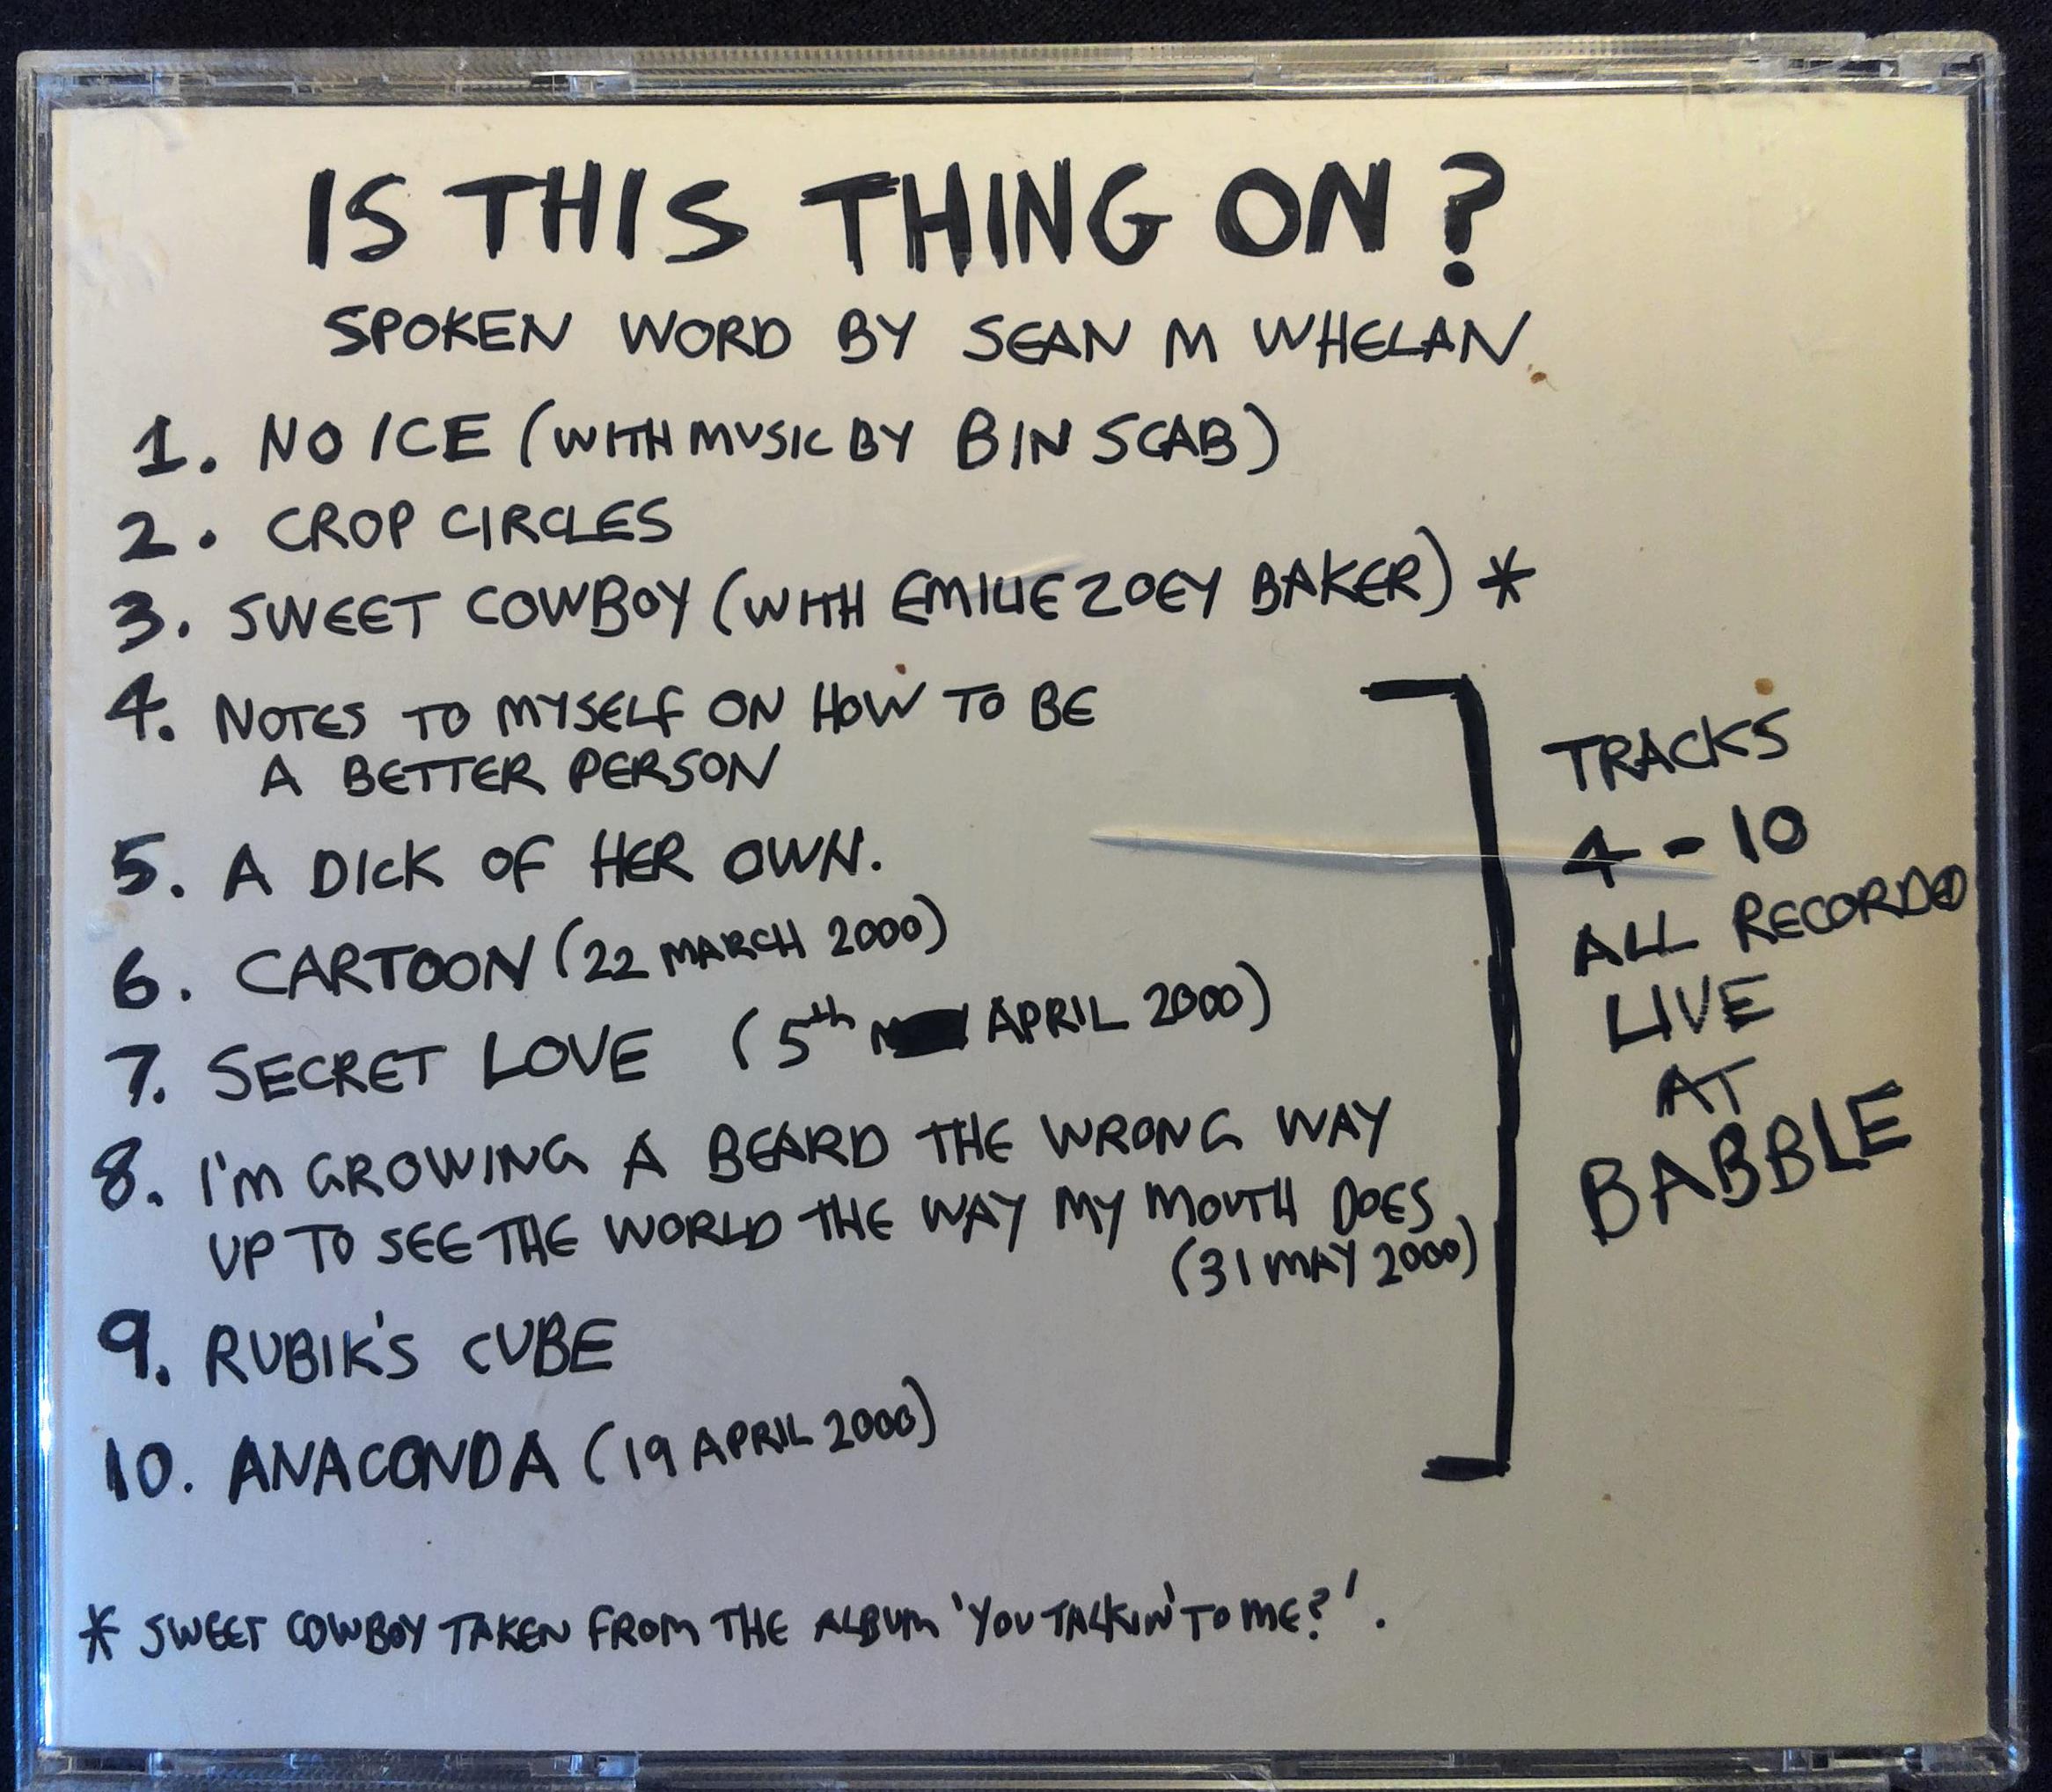 IS THIS THING ON?
SPOKEN WORD BY SEAN M WHELAN
1. NO ICE (WITH MUSIC BY BIN SCAB)
2. CROP CIRCLES
3. SWEET COWBOY (WITH EMILIE ZOEY BAKER) *
4. NOTES TO MYSELF ON HOW TO BE
A BETTER PERSON
5. A DICK OF HER OWN.
6. CARTOON (22 MARCH 2000)
7. SECRET LOVE (5th APRIL 2000)
8. I'M GROWING A BEARD THE WRONG WAY
UP TO SEE THE WORLD THE WAY MY MOUTH DOES
(31 MAY 2000)
9. RUBIK'S CUBE
10. ANACONDA (19 APRIL 2000)
TRACKS
4-10
ALL RECORDED
LIVE
AT
BABBLE
* SWEET COWBOY TAKEN FROM THE ALBUM 'YOU TALKIN' TO ME?'.